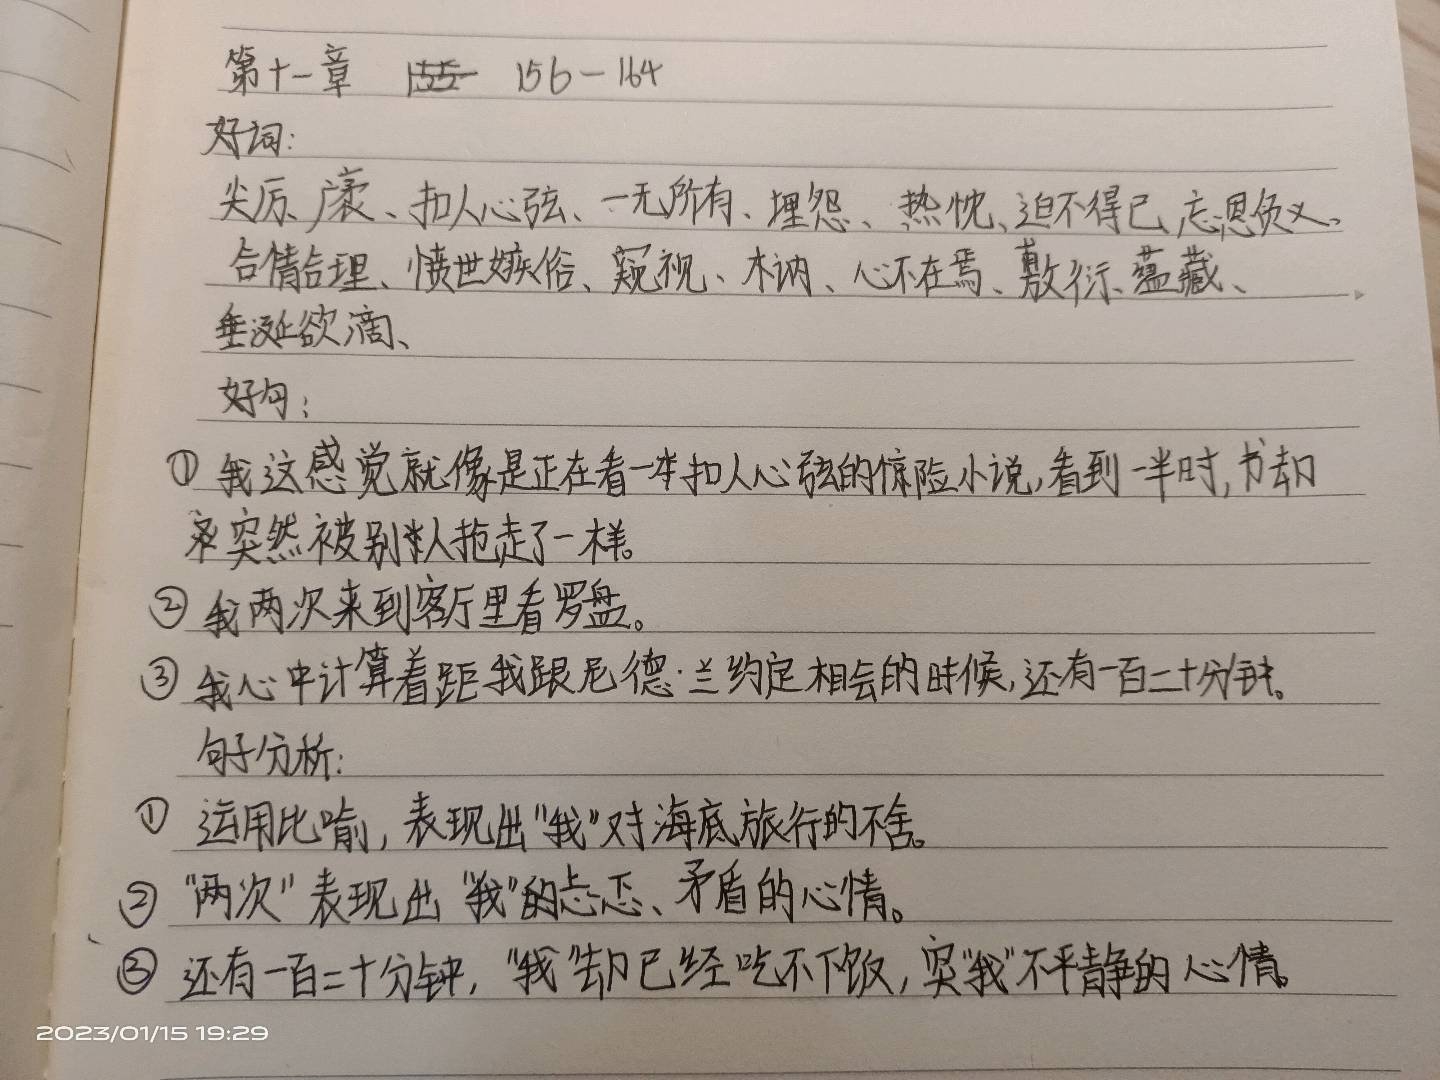 第十一章 156-164
好词:
尖厉、扣人心弦、一无所有、埋怨、热忱、迫不得已、忘恩负义、
合情合理、愤世嫉俗、窥视、木讷、心不在焉、敷衍、蕴藏、
垂涎欲滴、
好句:
①我这感觉就像是正在看一本扣人心弦的惊险小说,看到一半时,书却
突然被别人拖走了一样。
②我两次来到客厅里看罗盘。
③我心中计算着距我跟尼德·兰约定相会的时候,还有一百二十分钟。
句子分析:
①运用比喻,表现出"我"对海底旅行的不舍。
②"两次"表现出"我"的忐忑、矛盾的心情。
③还有一百二十分钟,"我"却已经吃不下饭,突"我"不平静的心情。
2023/01/15 19:29